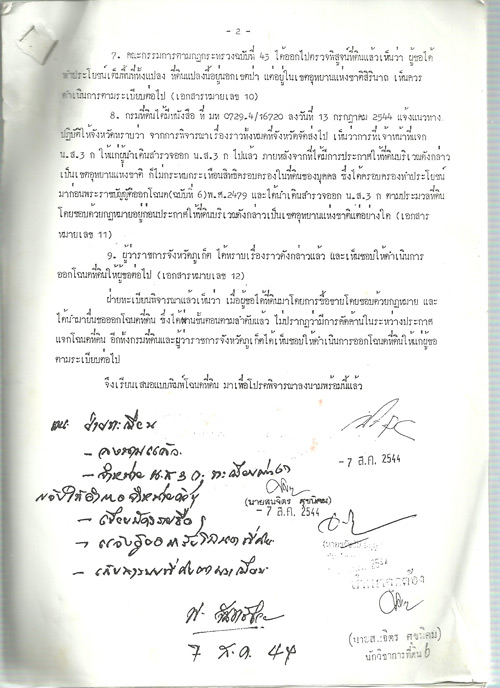 - 2 -
7. คณะกรรมการตามกฎกระทรวงฉบับที่ 43 ได้ออกไปตรวจพิสูจน์ที่ดินแล้วเห็นว่า ผู้ขอได้
ทำประโยชน์เต็มพื้นที่ทั้งแปลง ที่ดินแปลงนี้อยู่นอกเขตป่าฯ แต่อยู่ในเขตอุทยานแห่งชาติสิรินาถ เห็นควร
ดำเนินการตามระเบียบต่อไป (เอกสารหมายเลข 10)
8. กรมที่ดินได้มีหนังสือ ที่ มท 0729.4/16720 ลงวันที่ 13 กรกฎาคม 2544 แจ้งแนวทาง
ปฏิบัติให้จังหวัดทราบว่า จากการพิจารณาเรื่องราวทั้งหมดที่จังหวัดจัดส่งไป เห็นว่าการที่เจ้าหน้าที่แจก
น.ส.3 ก ให้แก่ผู้นำเดินสำรวจออก น.ส.3 ก ไปแล้ว ภายหลังจากที่ได้มีการประกาศให้ที่ดินบริเวณดังกล่าว
เป็นเขตอุทยานแห่งชาติ ก็ไม่กระทบกระเทือนสิทธิครอบครองในที่ดินของบุคคล ซึ่งได้ครอบครองทำประโยชน์
มาก่อนพระราชบัญญัติออกโฉนด(ฉบับที่ 6)พ.ศ.2479 และได้นำเดินสำรวจออก น.ส.3 ก ตามประมวลที่ดิน
โดยชอบด้วยกฎหมายอยู่ก่อนประกาศให้ที่ดินบริเวณดังกล่าวเป็นเขตอุทยานแห่งชาติแต่อย่างใด (เอกสาร
หมายเลข 11)
9. ผู้ว่าราชการจังหวัดภูเก็ต ได้ทราบเรื่องราวดังกล่าวแล้ว และเห็นชอบให้ดำเนินการ
ออกโฉนดที่ดินให้ผู้ขอต่อไป (เอกสารหมายเลข 12)
ฝ่ายทะเบียนพิจารณาแล้วเห็นว่า เมื่อผู้ขอได้ที่ดินมาโดยการซื้อขายโดยชอบด้วยกฎหมาย และ
ได้นำมายื่นขอออกโฉนดที่ดิน ซึ่งได้ผ่านขั้นตอนตามลำดับแล้ว ไม่ปรากฏว่ามีการคัดค้านในระหว่างประกาศ
แจกโฉนดที่ดิน อีกทั้งกรมที่ดินและผู้ว่าราชการจังหวัดภูเก็ตได้เห็นชอบให้ดำเนินการออกโฉนดที่ดินให้แก่ผู้ขอ
ตามระเบียบต่อไป
จึงเรียนเสนอแบบพิมพ์โฉนดที่ดิน มาเพื่อโปรดพิจารณาลงนามพร้อมนี้แล้ว
ฝ่ายทะเบียน
- ลงนามแล้ว
- 7 ส.ค. 2544
(นายสมจิตร สุขนิคม)
- 7 ส.ค. 2544
7 ส.ค. 44
(นายสมจิตร สุขนิคม)
นักวิชาการที่ดิน 6